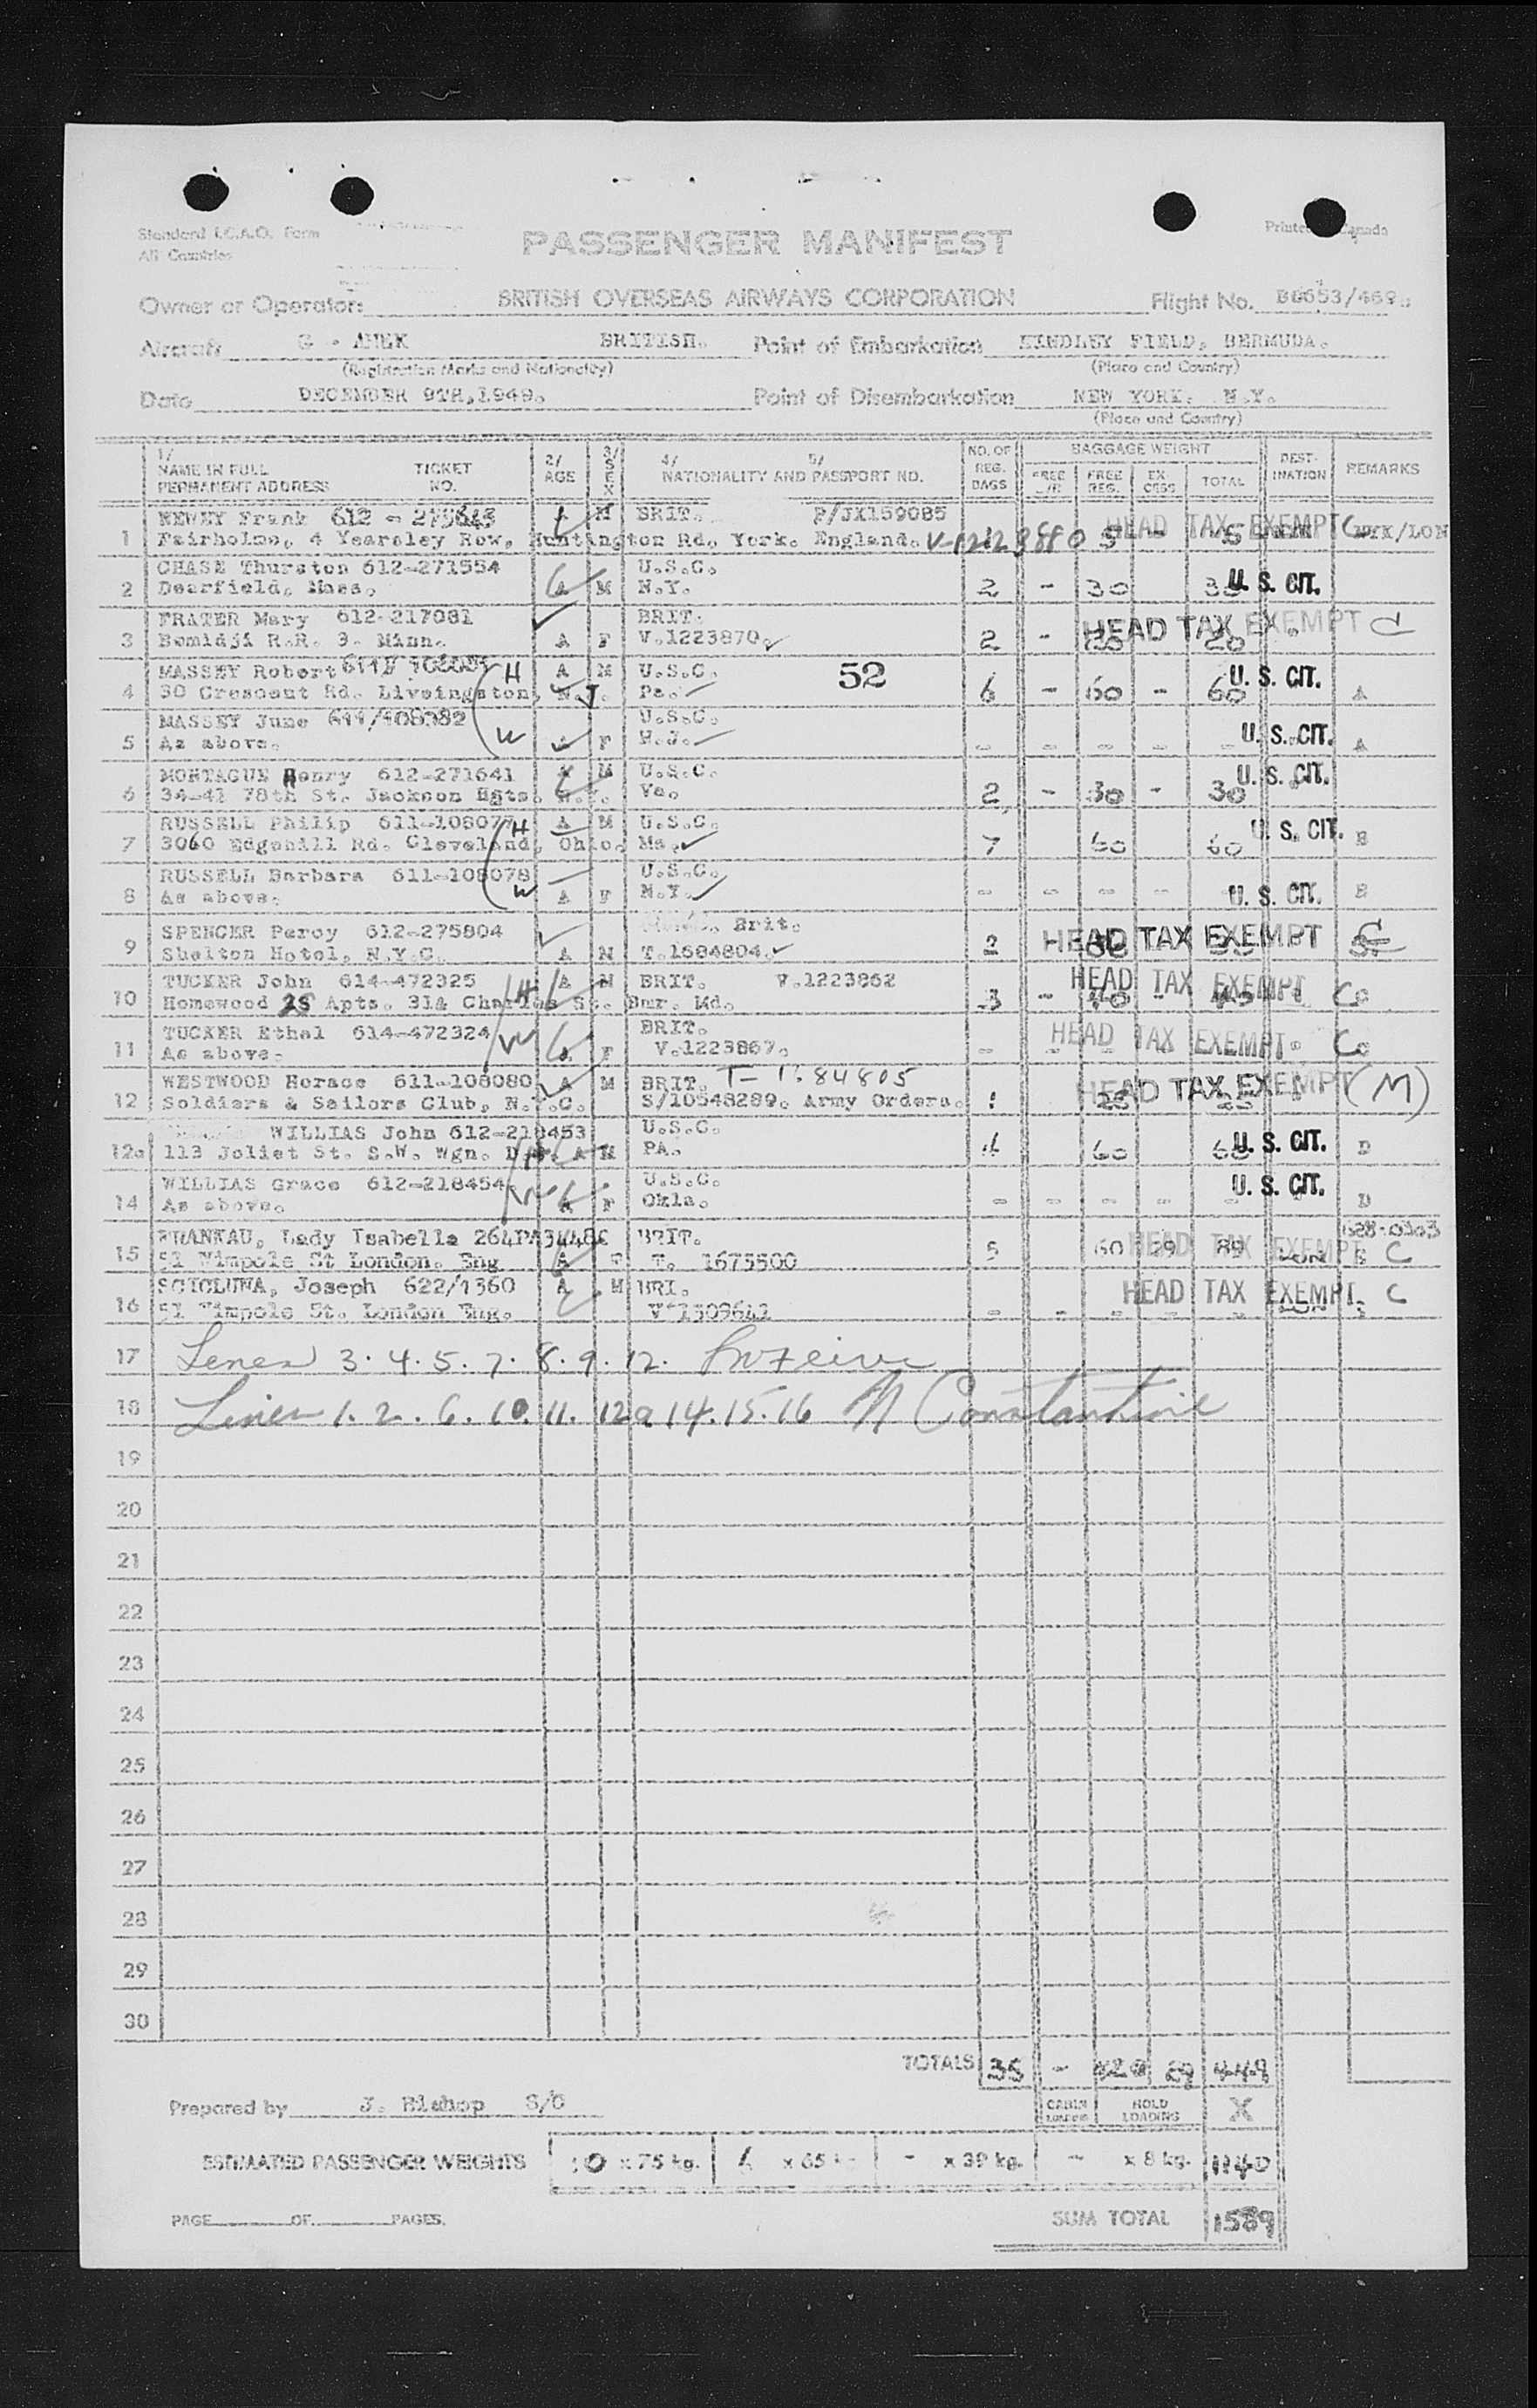 Standard I.C.A.O. Form
All Countries
PASSENGER MANIFEST
Printed Canada
Owner or Operator: BRITISH OVERSEAS AIRWAYS CORPORATION Flight No.
Aircraft BRITISH. Point of Embarkation KINDLEY FIELD, BERMUDA.
(Registration Marks and Nationality) (Place and Country)
Date DECEMBER 9TH, 1949. Point of Disembarkation NEW YORK. N.Y.
(Place and Country)
1/ NAME IN FULL PERMANENT ADDRESS TICKET NO. 2/ AGE 3/ SEX 4/ 5/ NATIONALITY AND PASSPORT NO. NO. OF REG. BAGS BAGGAGE WEIGHT FREE FREE REG. EXCESS TOTAL DESTINATION REMARKS
NEWEY Frank 612 - 275643 M BRIT. P/JX159085 HEAD TAX EXEMPT C
1 Fairholme, 4 Yearsley Row, Huntington Rd. York. England. NYK/LON
CHASE Thurston 612-271554 U.S.C.
2 Dearfield, Mass. A M N.Y. 2 - 30 30 U.S. CIT.
FRATER Mary 612-217081 BRIT.
3 Bemidji R.R. 3. Minn. A F V.1223870. 2 - 20 HEAD TAX EXEMPT C
MASSEY Robert A M U.S.C. 52
4 30 Crescent Rd. Livingston, N.J. Pa. 6 - 60 - 60 U.S. CIT. A
MASSEY June 611/108082 U.S.C.
5 As above. A F N.J. - - - - - U.S. CIT. A
MONTAGUE Henry 612-271641 M U.S.C.
6 34-41 78th St. Jackson Hgts. N.Y. Va. 2 - 30 - 30 U.S. CIT.
RUSSELL Philip 611-108077 A M U.S.C.
7 3060 Edgehill Rd. Cleveland, Ohio. Ma. 7 60 60 U.S. CIT. B
RUSSELL Barbara 611-108078 U.S.C.
8 As above. A F N.Y. - - - - - U.S. CIT. B
SPENCER Percy 612-275804 Brit.
9 Shelton Hotel, N.Y.C. A M T.1684804. 2 HEAD TAX EXEMPT C
TUCKER John 614-472325 A M BRIT. V.1223862
10 Homewood Apts. 314 Charles St. Bmr. Md. 3 - 40 - 40 HEAD TAX EXEMPT C
TUCKER Ethel 614-472324 BRIT.
11 As above. A F V.1223867. HEAD TAX EXEMPT C
WESTWOOD Horace 611-108080 A M BRIT. T-1684805
12 Soldiers & Sailors Club, N.Y.C. S/10548289. Army Orders. HEAD TAX EXEMPT (M)
WILLIAS John 612-218453 U.S.C.
12a 113 Joliet St. S.W. Wgn. A M PA. 4 60 60 U.S. CIT. D
WILLIAS Grace 612-218454 U.S.C.
14 As above. A F Okla. - - - - - U.S. CIT. D
FRANKAU, Lady Isabella BRIT.
15 51 Wimpole St London. Eng A F T. 1675500 5 60 29 89 LON HEAD TAX EXEMPT E C
SCICLUNA, Joseph 622/1360 A M BRI.
16 51 Wimpole St. London Eng. V-1309641 HEAD TAX EXEMPT C
17 Lines 3. 4. 5. 7. 8. 9. 12.
18 Lines 1. 2. 6. 10. 11. 12a 14. 15. 16 M Constantine
19
20
21
22
23
24
25
26
27
28
29
30
TOTALS 35 - 420 29 449
Prepared by J. Bishop S/O
CABIN LOADING HOLD LOADING X
ESTIMATED PASSENGER WEIGHTS 10 x 75 kg. 6 x 65 - x 39 kg. - x 8 kg. 1140
PAGE OF PAGES. SUM TOTAL 1589